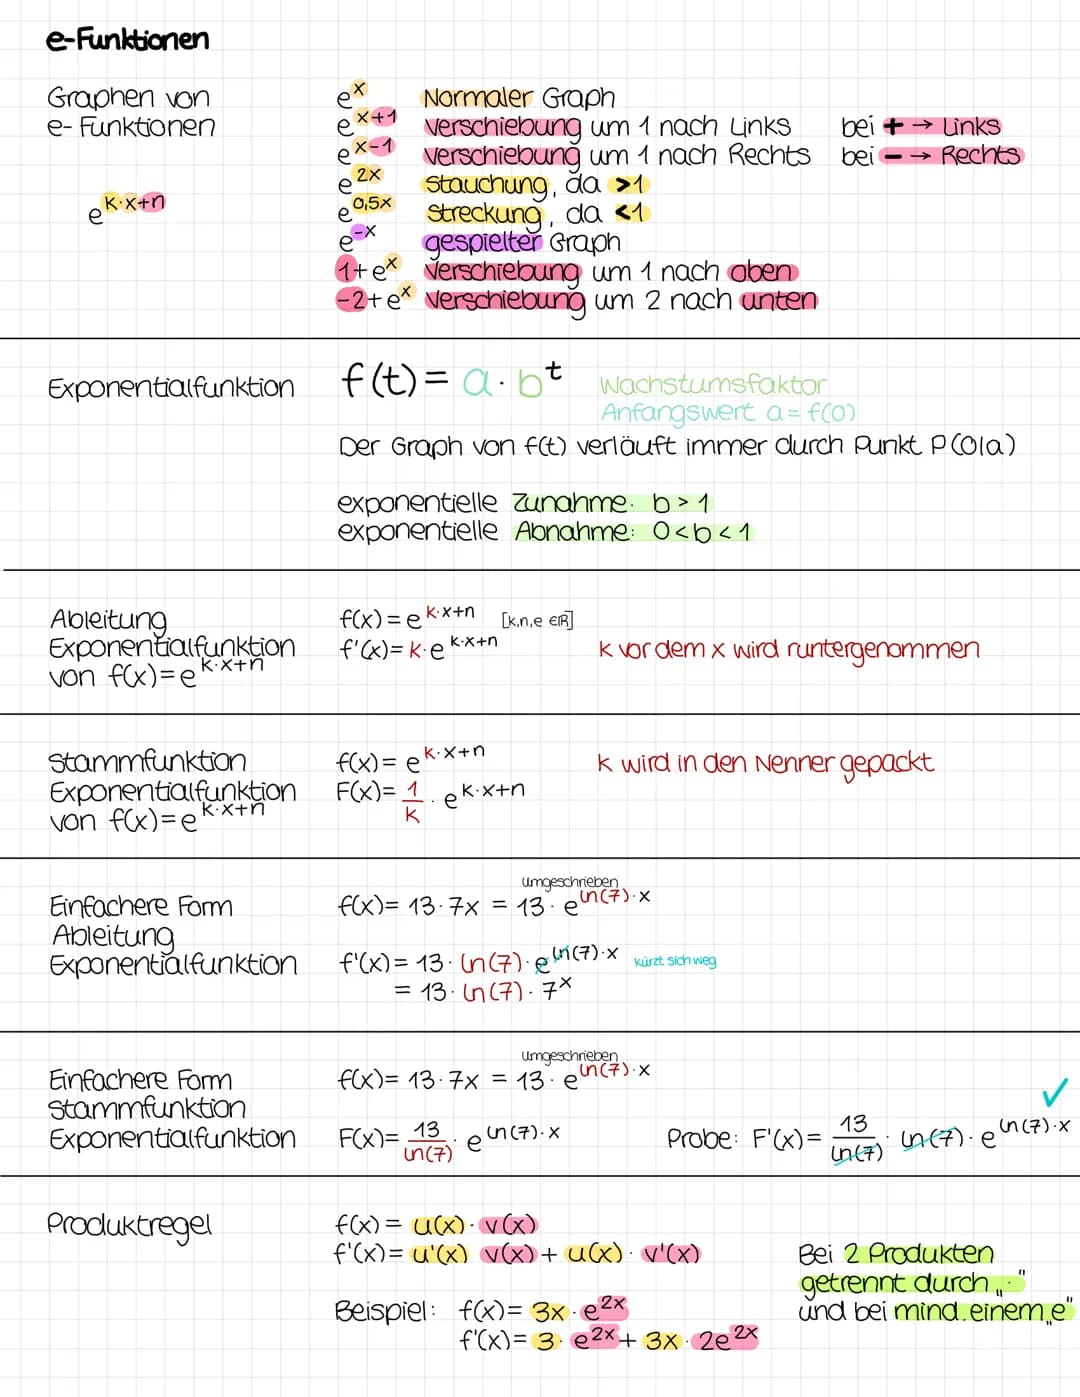 e-Funktionen
Graphen von
e- Funktionen
e^k·x+n
e^x Normaler Graph
e^x+1 Verschiebung um 1 nach Links bei + → Links
e^x-1 Verschiebung um 1 nach Rechts bei - → Rechts
e^2x Stauchung, da >1
e^0,5x Streckung, da <1
e^-x gespielter Graph
1+e^x Verschiebung um 1 nach oben
-2+e^x Verschiebung um 2 nach unten
Exponentialfunktion
f(t) = a · b^t Wachstumsfaktor
Anfangswert a = f(0)
Der Graph von f(t) verläuft immer durch Punkt P(0|a)
exponentielle Zunahme: b > 1
exponentielle Abnahme: 0<b<1
Ableitung
Exponentialfunktion
von f(x)=e^k·x+n
f(x) = e^k·x+n [k,n,e ∈ℝ]
f'(x)= k·e^k·x+n k vor dem x wird runtergenommen
Stammfunktion
Exponentialfunktion
von f(x)=e^k·x+n
f(x)= e^k·x+n k wird in den Nenner gepackt
F(x)= 1/k · e^k·x+n
Einfachere Form
Ableitung
Exponentialfunktion
umgeschrieben
f(x)= 13·7x = 13· e^ln(7)·x
f'(x)= 13· ln(7)·e^ln(7)·x kürzt sich weg
= 13· ln(7)· 7^x
Einfachere Form
Stammfunktion
Exponentialfunktion
umgeschrieben
f(x)= 13·7x = 13· e^ln(7)·x
F(x)= 13/ln(7) · e^ln(7)·x Probe: F'(x)= 13/ln(7) · ln(7)· e^ln(7)·x ✓
Produktregel
f(x) = u(x) · v(x)
f'(x)= u'(x) v(x) + u(x) · v'(x)
Beispiel: f(x)= 3x · e^2x
f'(x)= 3· e^2x + 3x · 2e^2x
Bei 2 Produkten
getrennt durch „·"
und bei mind. einem „e"